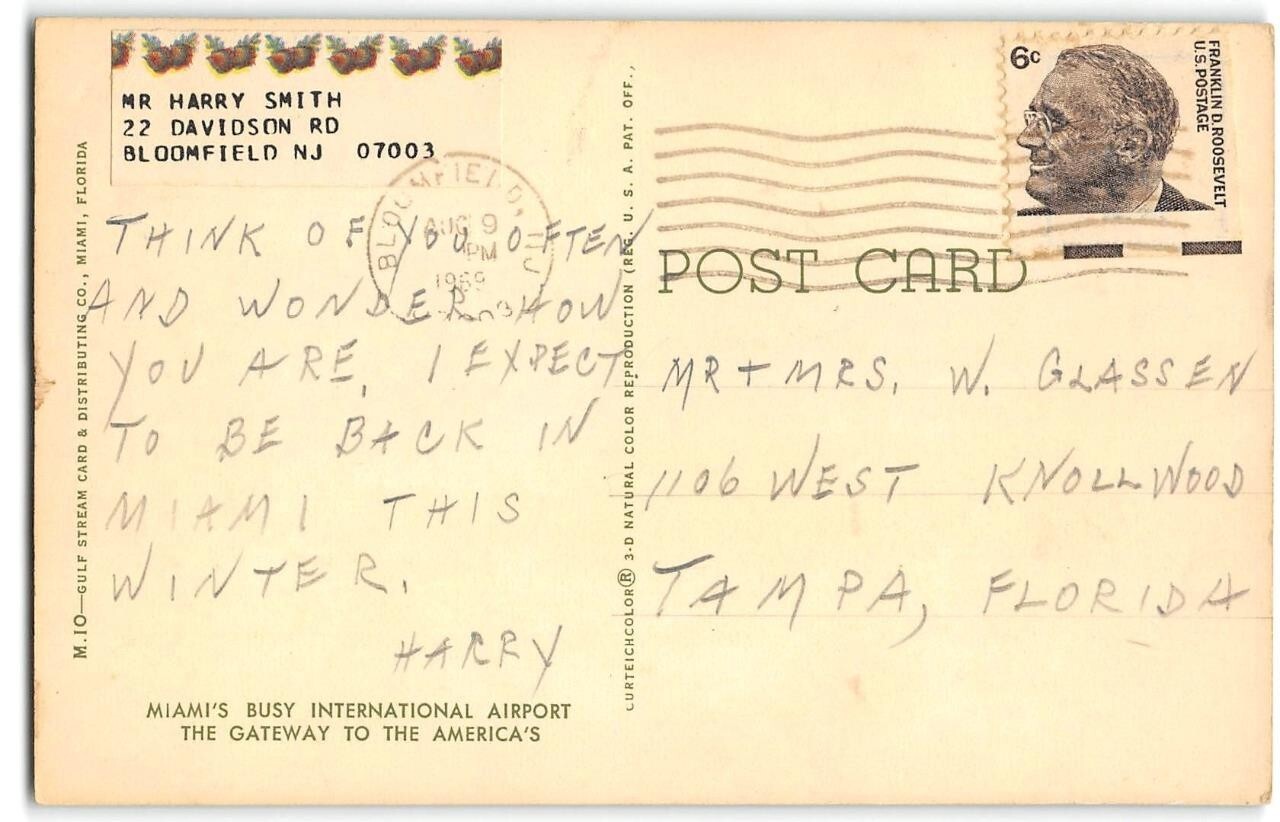 MR HARRY SMITH
22 DAVIDSON RD
BLOOMFIELD NJ 07003
BLOOMFIELD, NJ
AUG 9
PM
1969
THINK OF YOU OFTEN
AND WONDER HOW
YOU ARE, I EXPECT
TO BE BACK IN
MIAMI THIS
WINTER.
HARRY
MIAMI'S BUSY INTERNATIONAL AIRPORT
THE GATEWAY TO THE AMERICA'S
M.10—GULF STREAM CARD & DISTRIBUTING CO., MIAMI, FLORIDA
CURTEICHCOLOR® 3-D NATURAL COLOR REPRODUCTION (REG. U. S. A. PAT. OFF.,
6c
FRANKLIN D. ROOSEVELT
U.S. POSTAGE
POST CARD
MR + MRS. W. GLASSEN
1106 WEST KNOLLWOOD
TAMPA, FLORIDA